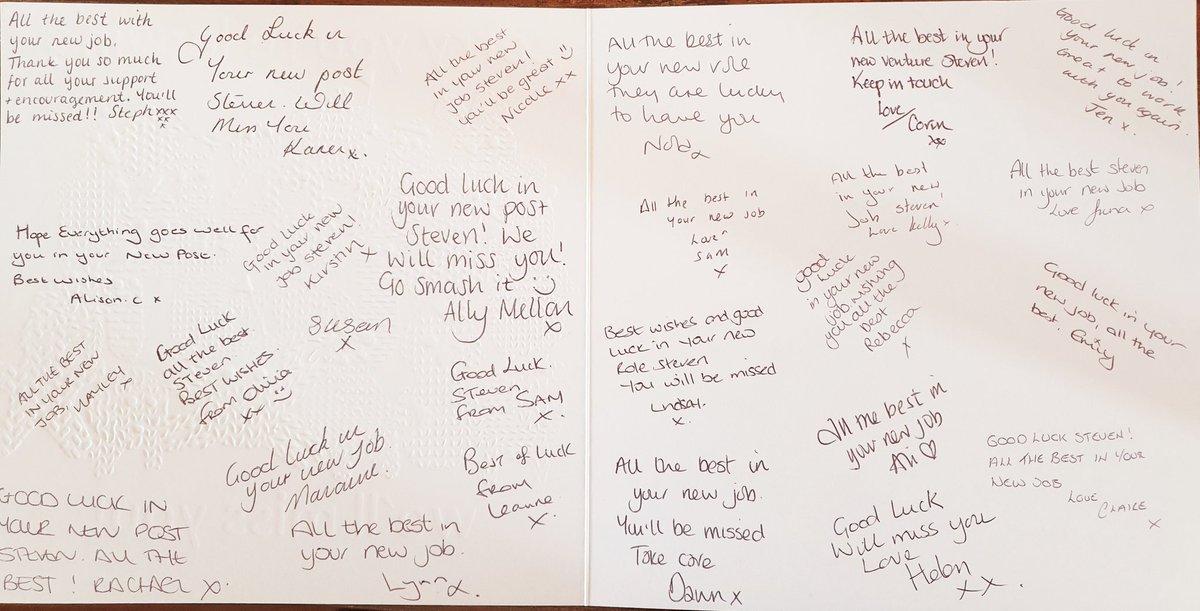 All the best with
your new job.
Thank you so much
for all your support
+ encouragement. You'll
be missed!! Steph xxx
xx
x
Good Luck in
Your new post
Steven. Will
Miss You
Karen x.
All the best
in your new
job Steven!
You'll be great :)
Nicole xx
Hope Everything goes well for
you in your New Post.
Best wishes
Alison.C x
Good Luck
in your new
job Steven!
Kirstin x
Good luck in
your new post
Steven! We
will miss you!
Go smash it :)
Ally Mellon
x
ALL THE BEST
IN YOUR NEW
JOB, HAYLEY
x
Good Luck
all the best
Steven
Best wishes
from Olivia
xx :)
Susan
x
Good Luck.
Steven
from SAM
x.
Good Luck in
your new job.
Best of Luck
from
Leanne
x.
GOOD LUCK IN
YOUR NEW POST
STEVEN. ALL THE
BEST! RACHAEL x.
All the best in
your new job.
Lynn x.
All the best in
your new role
they are lucky
to have you
x
All the best in your
new venture Steven!
Keep in touch
Love
Corin
xxx
Good luck in
your new job!
Great to work
with you again.
Jen x.
All the best in
your new job
Love
Sam
x
All the best
in your new
Job Steven!
Love Kelly x
All the best Steven
in your new Job
Love x
Best wishes and good
luck in your new
Role Steven
You will be missed
Lindsay.
x.
Good
Luck
in your new
job wishing
you all the
best
Rebecca
x
Good luck in your
new job, all the
best. Emily
x
All the best in
your new job
♡
GOOD LUCK STEVEN!
ALL THE BEST IN YOUR
NEW JOB
LOVE
CLAIRE
x
All the best in
your new job.
You'll be missed
Take care
Dawn x
Good Luck
Will miss you
Love
Helen
xx.